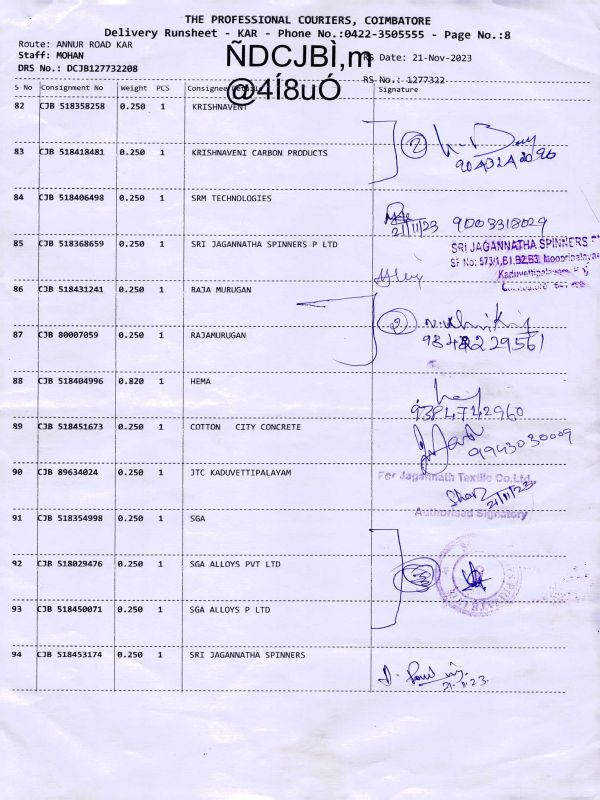 THE PROFESSIONAL COURIERS, COIMBATORE
Delivery Runsheet - KAR - Phone No.:0422-3505555 - Page No.:8
Route: ANNUR ROAD KAR
Staff: MOHAN
RS Date: 21-Nov-2023
DRS No.: DCJB127732208
RS No.: 1277322
ÑDCJBÌ,m
@4Í8uÓ
S No Consignment No Weight PCS Consignee Details Signature
82 CJB 518358258 0.250 1 KRISHNAVENI
83 CJB 518418481 0.250 1 KRISHNAVENI CARBON PRODUCTS
2
84 CJB 518406498 0.250 1 SRM TECHNOLOGIES
21/11/23 9003318029
85 CJB 518368659 0.250 1 SRI JAGANNATHA SPINNERS P LTD
SRI JAGANNATHA SPINNERS
SF No: 573/1,B1,B2,B3, Mooppripalayam
Kaduvettipalayam
86 CJB 518431241 0.250 1 RAJA MURUGAN
87 CJB 80007059 0.250 1 RAJAMURUGAN
2
88 CJB 518404996 0.820 1 HEMA
9384742960
89 CJB 518451673 0.250 1 COTTON CITY CONCRETE
9943030009
90 CJB 89634024 0.250 1 JTC KADUVETTIPALAYAM
For Jagannath Textile Co.Ltd.
21/11/23
Authorised Signatory
91 CJB 518354998 0.250 1 SGA
92 CJB 518029476 0.250 1 SGA ALLOYS PVT LTD
93 CJB 518450071 0.250 1 SGA ALLOYS P LTD
94 CJB 518453174 0.250 1 SRI JAGANNATHA SPINNERS
21.11.23.